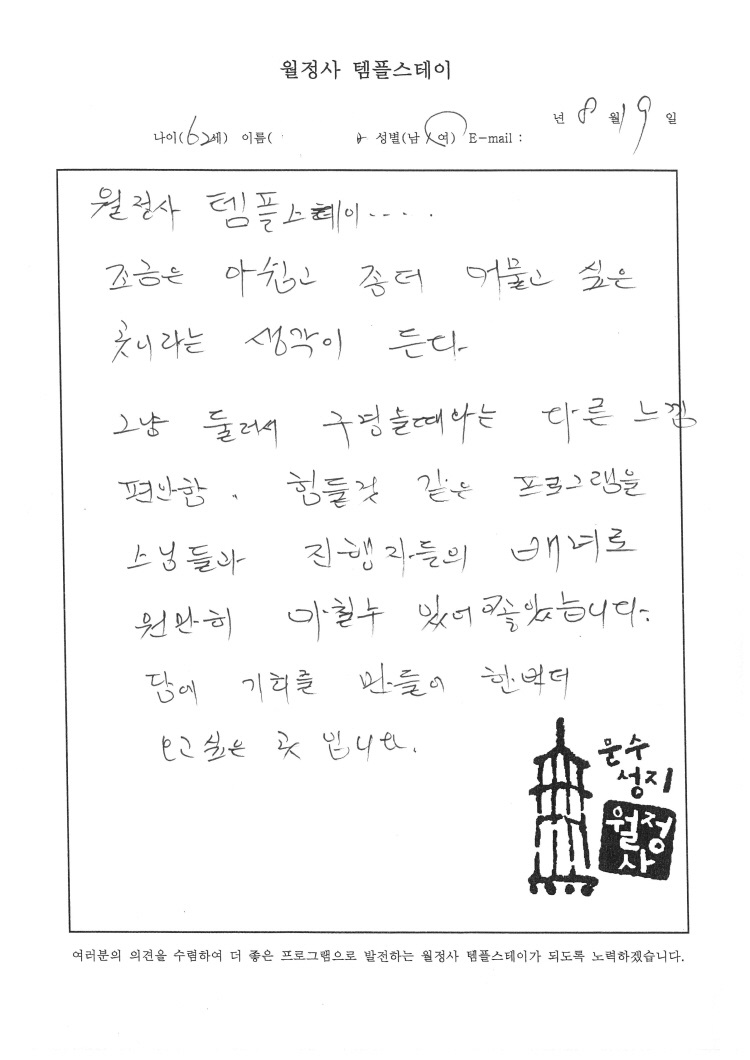 월정사 템플스테이
년 8 월 19 일
나이(62세) 이름( ) 성별(남/여) E-mail :
월정사 템플스테이.....
조금은 아쉽고 좀더 머물고 싶은
곳이라는 생각이 든다.
그냥 둘러서 구경할때와는 다른 느낌
편안함. 힘들것 같은 프로그램을
스님들과 진행자들의 배려로
원만히 마칠수 있어 좋았습니다.
담에 기회를 만들어 한번더
오고싶은 곳 입니다.
문수
성지
월정
사
여러분의 의견을 수렴하여 더 좋은 프로그램으로 발전하는 월정사 템플스테이가 되도록 노력하겠습니다.